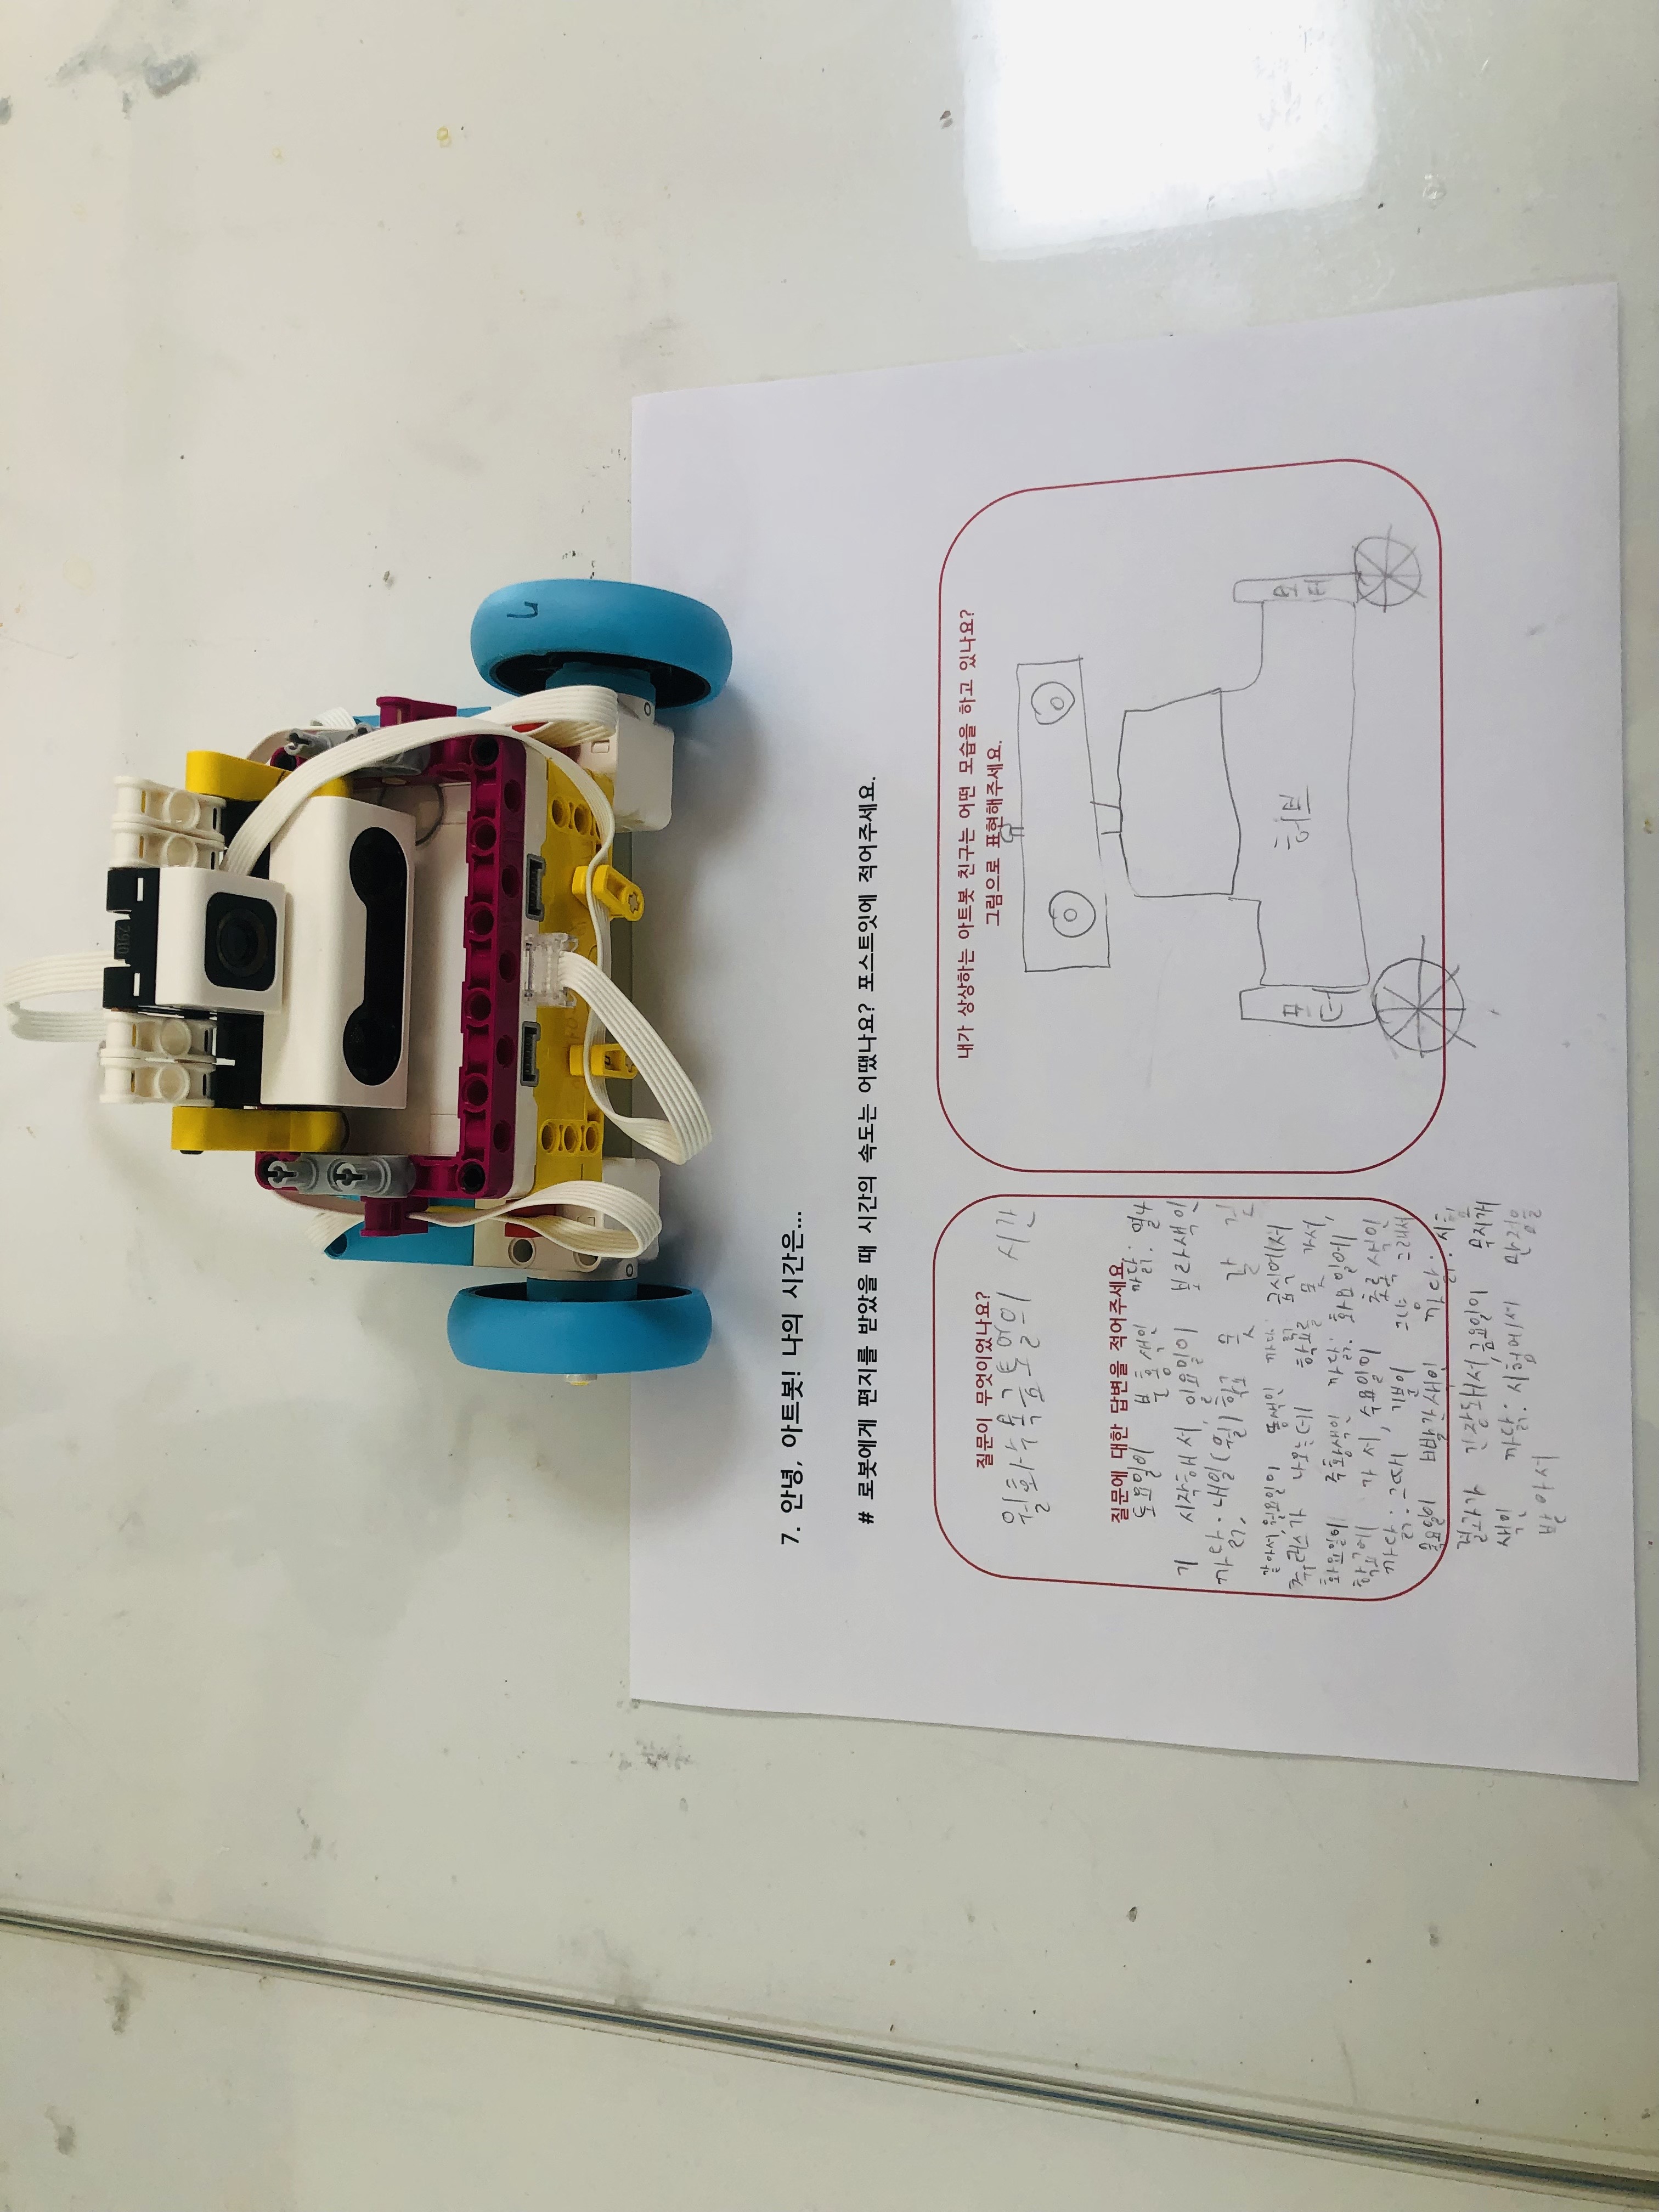 7. 안녕, 아트봇! 나의 시간은...
# 로봇에게 편지를 받았을 때 시간의 속도는 어땠나요? 포스트잇에 적어주세요.
질문이 무엇이었나요?
월화수목금토일의 시간
질문에 대한 답변을 적어주세요
토요일이 분홍색인 까닭: 열나
기 시작해서, 일요일이 보라색인
까닭: 내일(월) 학교 못 갈 것
같아서, 월요일이 똥색인 까닭: 급식에서
츄러스가 나오는데 학교를 못 가서,
화요일이 주황색인 까닭: 화요일에
학교에 가서, 수요일이 초록색인
까닭: 그때 기분이 그냥 그래서
목요일이 빨간색인 까닭: 시험
결과가 긴장돼서, 금요일이 무지개
색인 까닭: 시험에서 만점을
받아서
내가 상상하는 아트봇 친구는 어떤 모습을 하고 있나요?
그림으로 표현해주세요.
모터
허브
모터